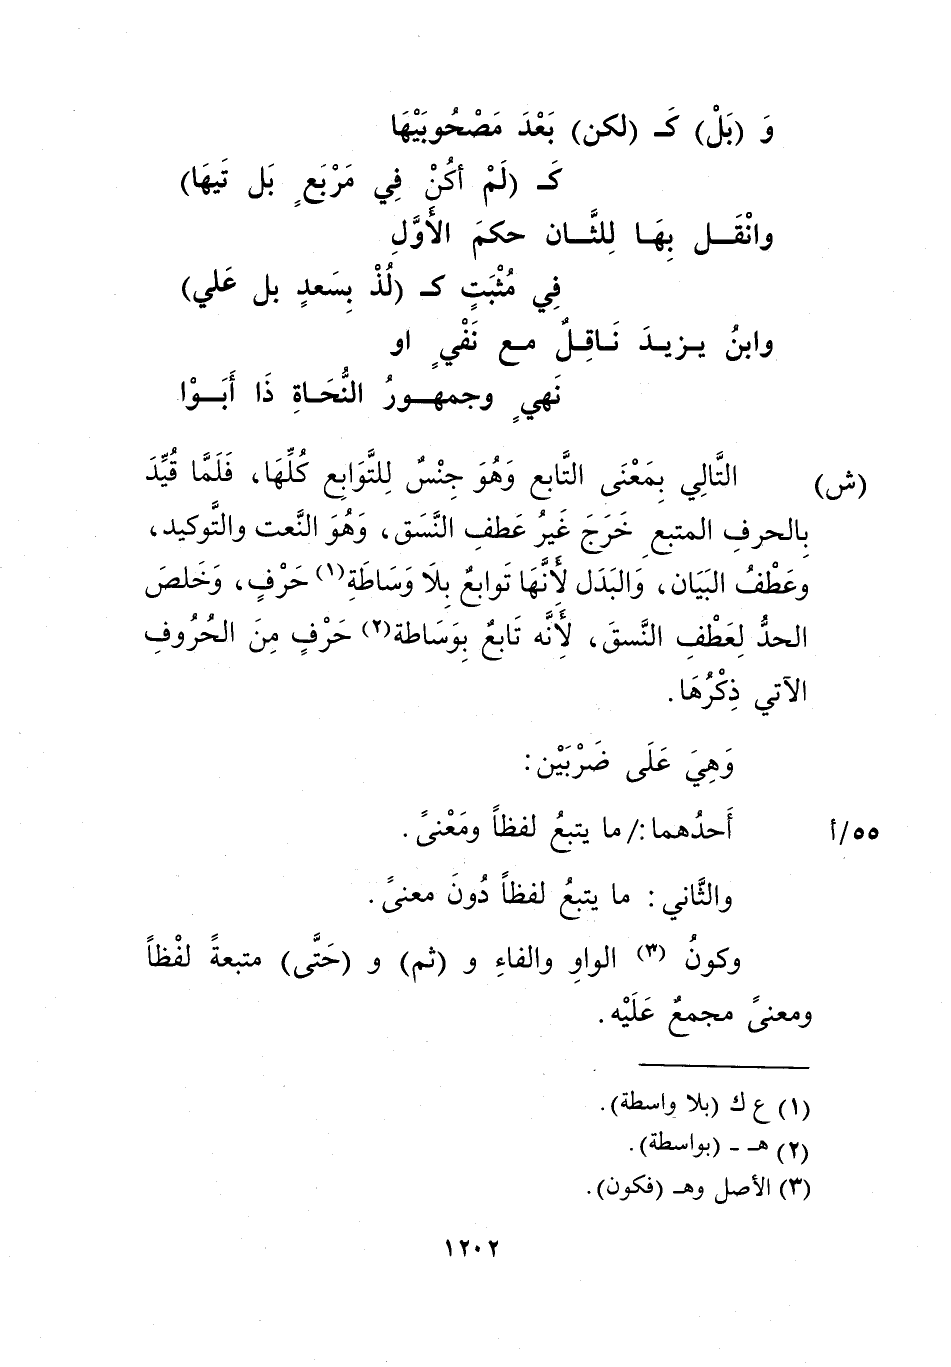 وَ (بَلْ) كَـ (لكن) بَعْدَ مَصْحُوبَيْهَا
كَـ (لَمْ أكُنْ فِي مَرْبَعٍ بَل تَيهَا)
وانْقَـــل بِهَـا لِلثَّـــان حكمَ الأَوَّلِ
فِي مُثْبَتٍ كـ (لُذْ بِسَعدٍ بل عَلي)
وابنُ يـزيـدَ نَـاقِـلٌ مـع نَفْيٍ او
نَهيٍ وجمهـورُ النُّحَـاةِ ذَا أَبَـوْا
(ش) التَّالِي بِمَعْنَى التَّابع وَهُوَ جِنْسٌ لِلتَّوَابِعِ كُلِّهَا، فَلَمَّا قُيِّدَ
بالحرفِ المتبعِ خَرَجَ غَيرُ عَطفِ النَّسَق، وَهُوَ النَّعت والتَّوكيد،
وعَطْفُ البَيان، وَالبَدَل لأَنَّهَا تَوابعٌ بِلَا وَسَاطَةِ(١) حَرْفٍ، وَخَلصَ
الحدُّ لِعَطْفِ النَّسقَ، لأَنَّه تَابعٌ بِوَسَاطة(٢) حَرْفٍ مِنَ الحُرُوفِ
الآتي ذِكْرُهَا.
وَهِيَ عَلَى ضَرْبَيْن:
٥٥/أ أَحدُهما:/ ما يتبعُ لفظاً ومَعْنىً.
والثَّاني: ما يتبعُ لفظاً دُونَ معنىً.
وكونُ (٣) الواوِ والفاءِ و (ثم) و (حَتَّى) متبعةً لفْظاً
ومعنىً مجمعٌ عَلَيْه.
(١) ع ك (بلا واسطة).
(٢) هـ - (بواسطة).
(٣) الأصل وهـ (فكون).
١٢٠٢